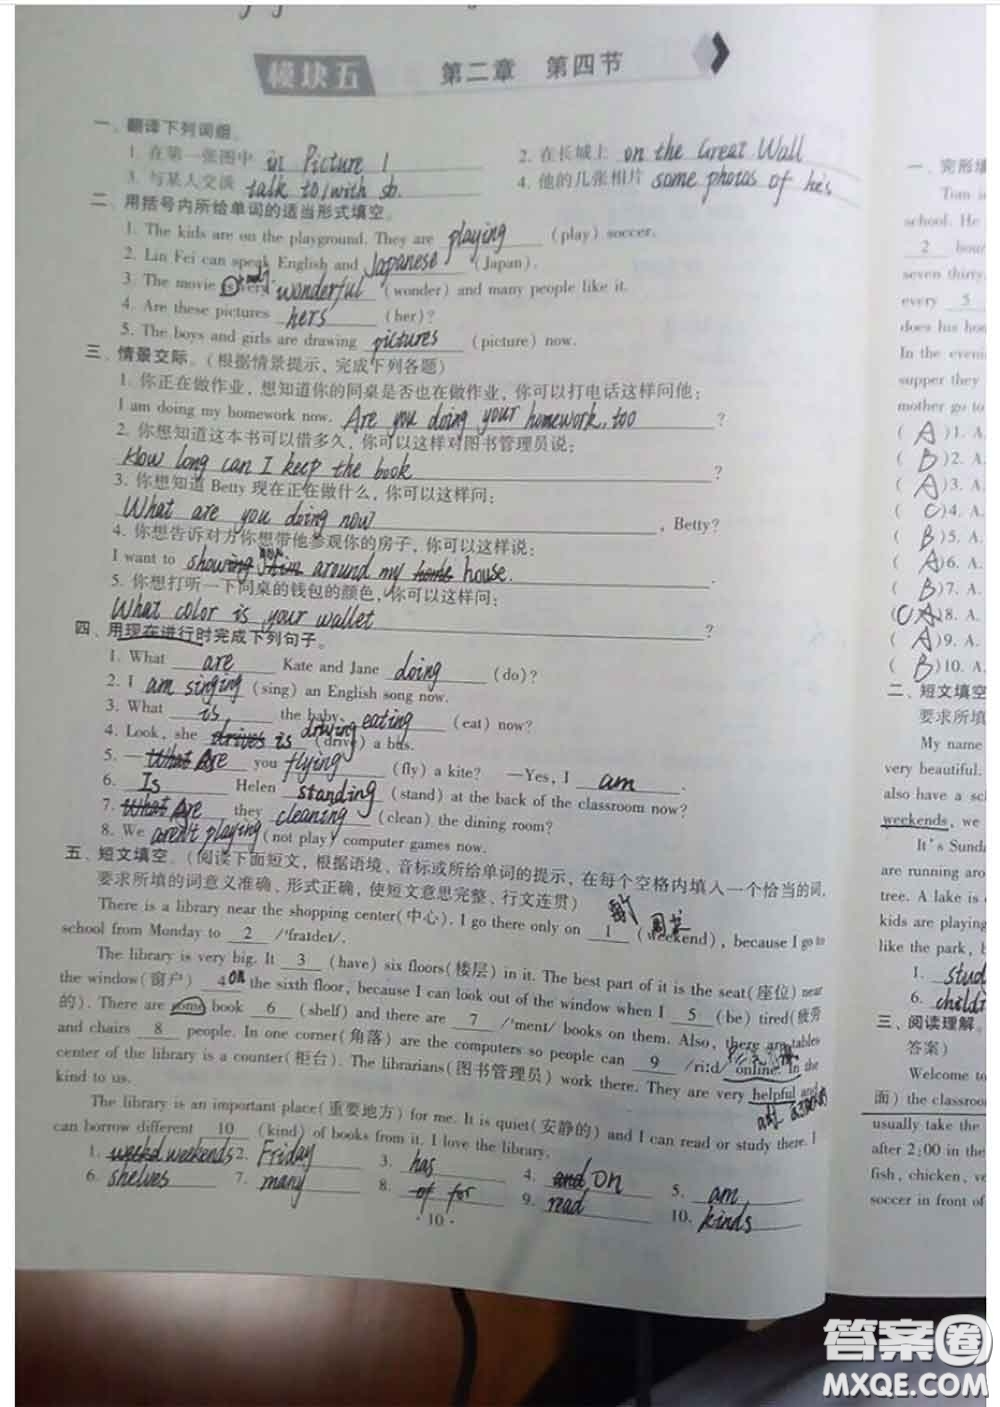 模块五 第二章 第四节
一、翻译下列词组。
1. 在第一张图中 in Picture 1 2. 在长城上 on the Great Wall
3. 与某人交谈 talk to/with sb. 4. 他的几张相片 some photos of he's
二、用括号内所给单词的适当形式填空。
1. The kids are on the playground. They are playing (play) soccer.
2. Lin Fei can speak English and Japanese (Japan).
3. The movie is very wonderful (wonder) and many people like it.
4. Are these pictures hers (her)?
5. The boys and girls are drawing pictures (picture) now.
三、情景交际。(根据情景提示，完成下列各题)
1. 你正在做作业，想知道你的同桌是否也在做作业，你可以打电话这样问他：
I am doing my homework now. Are you doing your homework, too ?
2. 你想知道这本书可以借多久，你可以这样对图书管理员说：
How long can I keep the book ?
3. 你想知道 Betty 现在正在做什么，你可以这样问：
What are you doing now , Betty?
4. 你想告诉对方你想带他参观你的房子，你可以这样说：
I want to show him around my home house.
5. 你想打听一下同桌的钱包的颜色，你可以这样问：
What color is your wallet ?
四、用现在进行时完成下列句子。
1. What are Kate and Jane doing (do)?
2. I am singing (sing) an English song now.
3. What is the baby eating (eat) now?
4. Look, she drives is driving (drive) a bus.
5. —What Are you flying (fly) a kite? —Yes, I am .
6. Is Helen standing (stand) at the back of the classroom now?
7. What Are they cleaning (clean) the dining room?
8. We aren't playing (not play) computer games now.
五、短文填空。(阅读下面短文，根据语境、音标或所给单词的提示，在每个空格内填入一个恰当的词，
要求所填的词意义准确、形式正确，使短文意思完整、行文连贯)
There is a library near the shopping center(中心). I go there only on 1 (weekend), because I go to
school from Monday to 2 /'fraɪdeɪ/.
The library is very big. It 3 (have) six floors(楼层) in it. The best part of it is the seat(座位) near
the window(窗户) 4 on the sixth floor, because I can look out of the window when I 5 (be) tired(疲劳
的). There are some book 6 (shelf) and there are 7 /'menɪ/ books on them. Also, there are tables
and chairs 8 people. In one corner(角落) are the computers so people can 9 /ri:d/ online. In the
center of the library is a counter(柜台). The librarians(图书管理员) work there. They are very helpful and
kind to us.
The library is an important place(重要地方) for me. It is quiet(安静的) and I can read or study there. I
can borrow different 10 (kind) of books from it. I love the library.
1. weekends 2. Friday 3. has 4. and on 5. am
6. shelves 7. many 8. of for 9. read 10. kinds
· 10 ·
一、完形填
Tom i
school. He
2 hour
seven thirty
every 5
does his ho
In the eveni
supper they
mother go to
( A )1. A.
( B )2. A.
( A )3. A.
( C )4. A.
( B )5. A.
( A )6. A.
( B )7. A.
( C A )8. A.
( A )9. A.
( B )10. A.
二、短文填空
要求所填
My name
very beautiful.
also have a sc
weekends, we
It's Sunda
are running aro
tree. A lake is
kids are playing
like the park, b
1. stud
6. childr
三、阅读理解。
答案)
Welcome to
面) the classroo
usually take the
after 2:00 in the
fish, chicken, ve
soccer in front of
答案圈
MXQE.COM